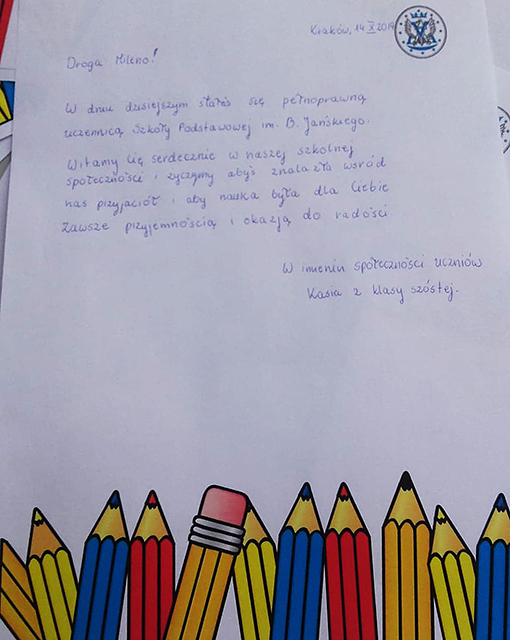 Kraków, 14 X 2019
Droga Mileno!
W dniu dzisiejszym stałaś się pełnoprawną
uczennicą Szkoły Podstawowej im. B. Jańskiego.
Witamy Cię serdecznie w naszej szkolnej
społeczności i życzymy abyś znalazła wśród
nas przyjaciół i aby nauka była dla Ciebie
Zawsze przyjemnością i okazją do radości
W imieniu społeczności uczniów
Kasia z klasy szóstej.